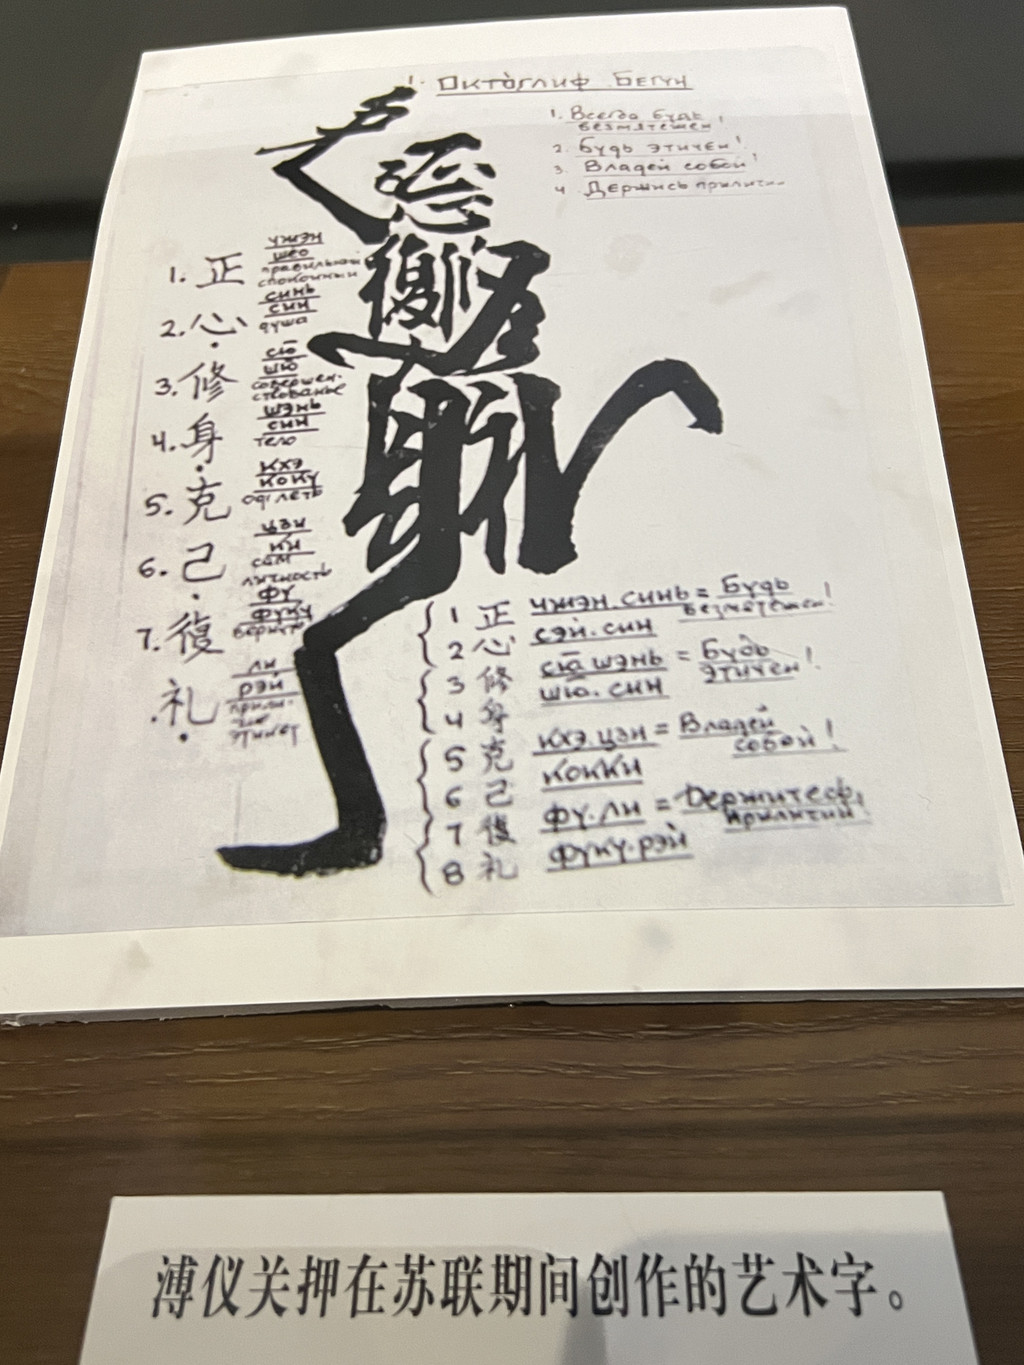 1. Октоглиф. Бегун
1. Всегда будь
безмятежен!
2. Будь этичен!
3. Владей собой!
4. Держись приличи
1. 正 чжэн
шео
правильный
спокойный
2. 心 синь
син
душа
3. 修 сю
шю
совершен-
ствованье
4. 身 шэнь
син
тело
5. 克 кхэ
коку
одолеть
6. 己 цзи
ки
сам
личность
7. 復 фу
фуку
вернуть
礼 ли
рэй
прили-
чие
этикет
1 正 чжэн.синь = Будь
безмятежен!
2 心 сэй.син
3 修 сю шэнь = Будь
этичен!
4 身 шю.син
5 克 кхэ.цзи = Владей
собой!
6 己 кокки
7 復 фу.ли = Держитесь
приличий!
8 礼 фуку.рэй
溥仪关押在苏联期间创作的艺术字。